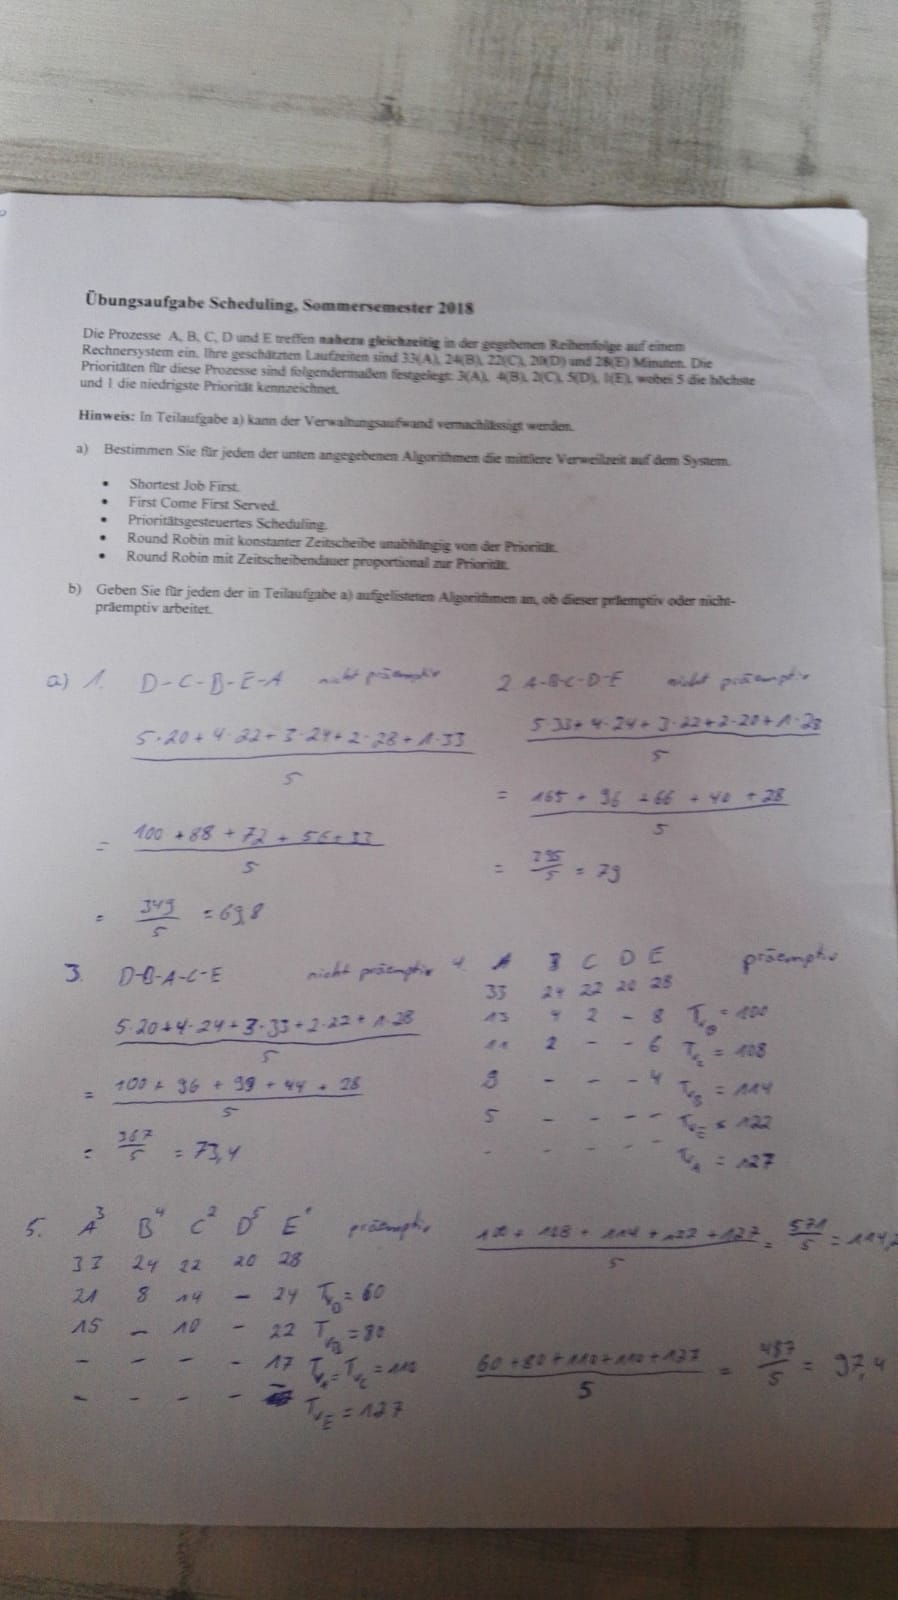 Übungsaufgabe Scheduling, Sommersemester 2018
Die Prozesse A, B, C, D und E treffen nahezu gleichzeitig in der gegebenen Reihenfolge auf einem
Rechnersystem ein. Ihre geschätzten Laufzeiten sind 33(A), 24(B), 22(C), 20(D) und 28(E) Minuten. Die
Prioritäten für diese Prozesse sind folgendermaßen festgelegt: 3(A), 4(B), 2(C), 5(D), 1(E), wobei 5 die höchste
und 1 die niedrigste Priorität kennzeichnet.
Hinweis: In Teilaufgabe a) kann der Verwaltungsaufwand vernachlässigt werden.
a) Bestimmen Sie für jeden der unten angegebenen Algorithmen die mittlere Verweilzeit auf dem System.
• Shortest Job First.
• First Come First Served.
• Prioritätsgesteuertes Scheduling.
• Round Robin mit konstanter Zeitscheibe unabhängig von der Priorität.
• Round Robin mit Zeitscheibendauer proportional zur Priorität.
b) Geben Sie für jeden der in Teilaufgabe a) aufgelisteten Algorithmen an, ob dieser präemptiv oder nicht-
präemptiv arbeitet.
a) 1. D-C-B-E-A nicht präemptiv
5·20+4·22+3·24+2·28+1·33
5
= 100+88+72+56+33
5
= 349
5 = 69,8
2 A-B-C-D-E nicht präemptiv
5·33+4·24+3·22+2·20+1·28
5
= 165+96+66+40+28
5
= 395
5 = 79
3. D-B-A-C-E nicht präemptiv
5·20+4·24+3·33+2·22+1·28
5
= 100+96+99+44+28
5
= 367
5 = 73,4
4. A B C D E präemptiv
33 24 22 20 28
13 4 2 - 8 TvD = 100
11 2 - - 6 TvC = 108
9 - - - 4 TvB = 114
5 - - - - TvE = 122
- - - - - TvA = 127
100+108+114+122+127
5 = 571
5 = 114,2
5. A3 B4 C2 D5 E1 präemptiv
33 24 22 20 28
21 8 14 - 24 TvD = 60
15 - 10 - 22 TvB = 80
- - - - 17 TvA = TvC = 110
- - - - TvE = 127
60+80+110+110+127
5 = 487
5 = 97,4